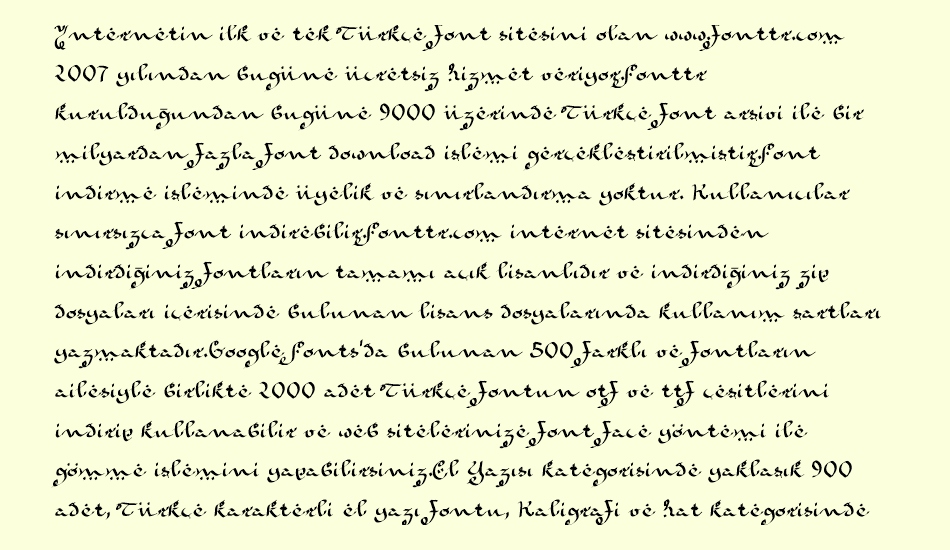 Ynternetin ilk ve tek Türkce font sitesini olan www.fonttr.com
2007 yılından bugüne ücretsiz hizmet veriyor.fonttr
kurulduğundan bugüne 9000 üzerinde Türkce font arsivi ile bir
milyardan fazla font download islemi gerceklestirilmistir.font
indirme isleminde üyelik ve sınırlandırma yoktur. Kullanıcılar
sınırsızca font indirebilir.fonttr.com internet sitesinden
indirdiğiniz fontların tamamı acık lisanlıdır ve indirdiğiniz zip
dosyaları icerisinde bulunan lisans dosyalarında kullanım sartları
yazmaktadır.Google fonts'da bulunan 500 farklı ve fontların
ailesiyle birlikte 2000 adet Türkce fontun otf ve ttf cesitlerini
indirip kullanabilir ve web sitelerinize font face yöntemi ile
gömme islemini yapabilirsiniz.El Yazısı kategorisinde yaklasık 900
adet, Türkce karakterli el yazı fontu, Kaligrafi ve hat kategorisinde